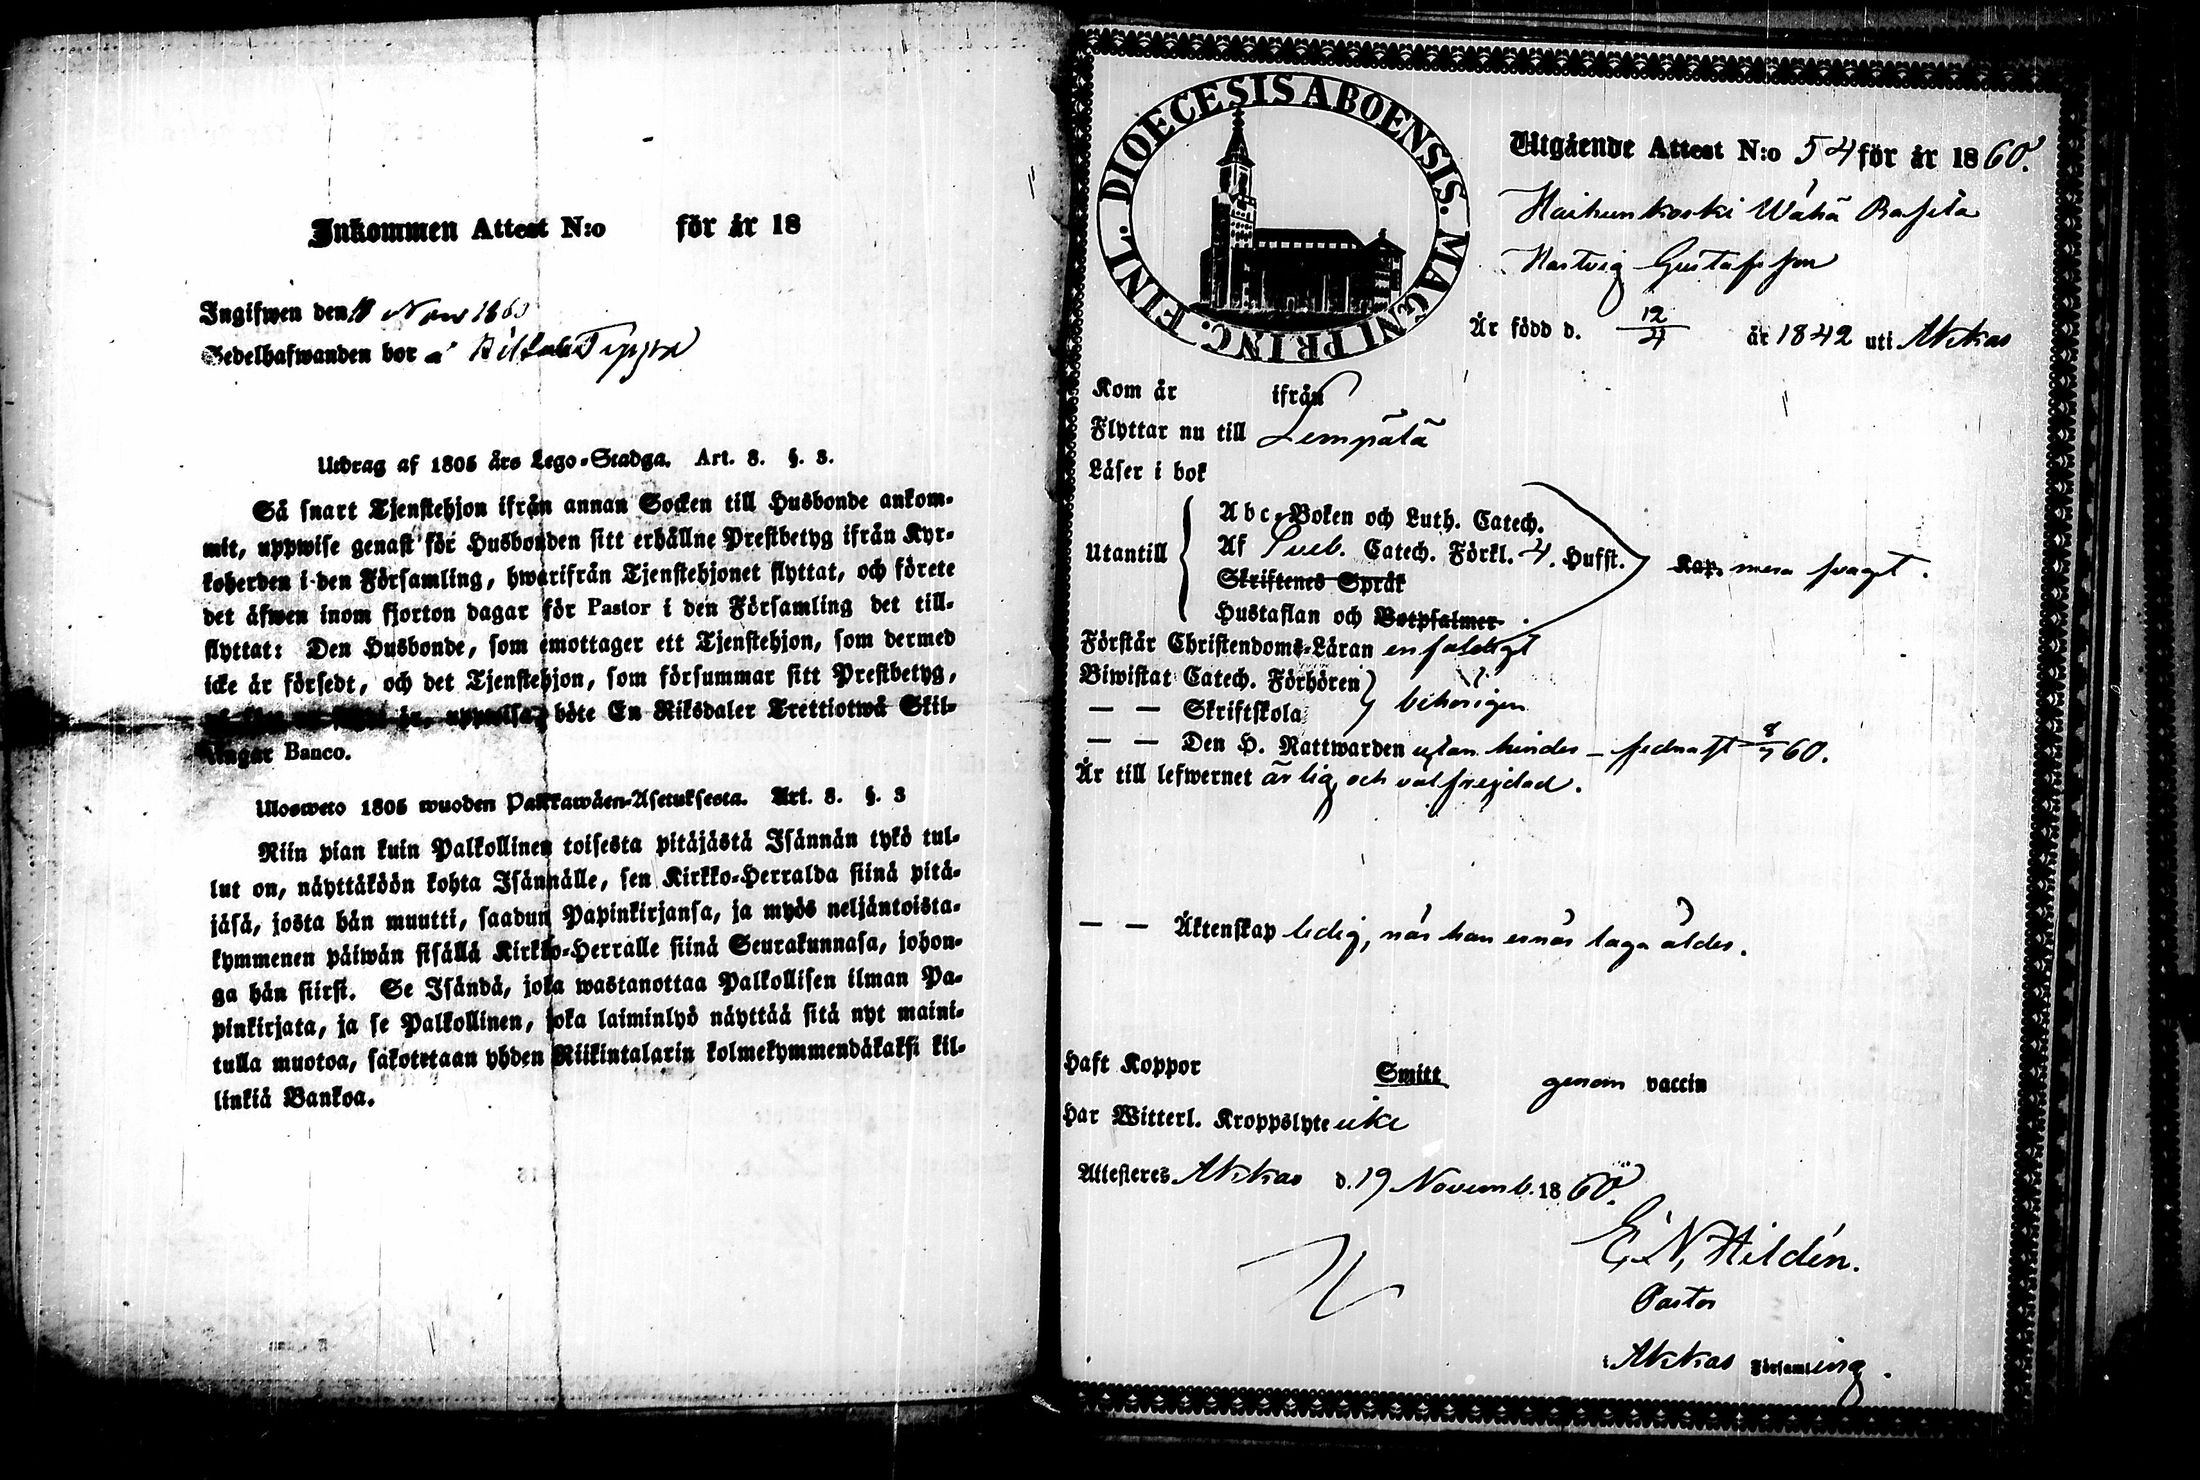 Inkommen Attest N:o för år 18
Ingifwen den Nov 1860
Sedelhafwanden bor å
Utdrag af 1805 års Lego-Stadga. Art. 8. §. 3.
Så snart Tjenstehjon ifrån annan Socken till Husbonde ankom-
mit, uppwise genast för Husbonden sitt erhållne Prestbetyg ifrån Kyr-
koherden i den Församling, hwarifrån Tjenstehjonet flyttat, och förete
det äfwen inom fjorton dagar för Pastor i den Församling det till-
flyttat: Den Husbonde, som emottager ett Tjenstehjon, som dermed
icke är försedt, och det Tjenstehjon, som försummar sitt Prestbetyg,
böte En Riksdaler Trettiotwå Skil-
lingar Banco.
Ulosweto 1805 wuoden Palkkawäen-Asetuksesta. Art. 8. §. 3
Niin pian kuin Palkollinen toisesta pitäjästä Isännän tykö tul-
lut on, näyttäköön kohta Isännälle, sen Kirkko-Herralda siinä pitä-
jäsä, josta hän muutti, saadun Papinkirjansa, ja myös neljäntoista-
kymmenen päiwän sisällä Kirkko-Herralle siinä Seurakunnasa, johon-
ga hän siirsi. Se Isändä, joka wastanottaa Palkollisen ilman Pa-
pinkirjata, ja se Palkollinen, joka laiminlyö näyttää sitä nyt maini-
tulla muotoa, sakotetaan yhden Riikintalarin kolmekymmendäkaksi kil-
linkiä Bankoa.
DIOECESIS ABOENSIS. MAGNI PRINC. FINL.
Utgående Attest N:o 54 för år 1860.
Haihunkoski Wähä Rasila
Hartvig Gustafsson
Är född d. 12/4 år 1842 uti Akkas
Kom år ifrån
Flyttar nu till Lempälä
Läser i bok
Utantill
Abc-Boken och Luth. Catech.
Af Sveb. Catech. Förkl. 4. Hufst.
Skriftenes Språk
Hustaflan och Botpsalmer
Kap. mera svagt.
Förstår Christendoms-Läran enfaldigt
Biwistat Catech. Förhören
— — Skriftskola
behörigen
— — Den H. Nattwarden utan hinder – sednast 8/7 60.
Är till lefwernet ärlig och välfrejdad.
— — Äktenskap ledig, når han ernår laga ålder.
Haft Koppor Smitt genom vaccin
Har Witterl. Kroppslyte icke
Attesteres Akkas d. 19 Novemb. 1860.
E. N. Hildén.
Pastor
i Akkas Församling.